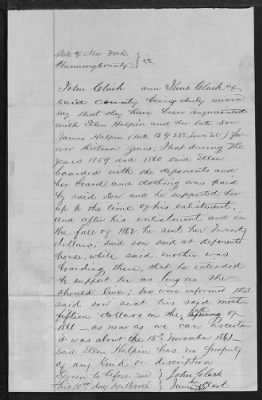 State of New York
Chemung County } SS.
John Clark and Jane Clark of
said County being duly sworn
say that they have been acquainted
with Ellen Halpin and her late son
James Halpin
over thirteen years. That during the
years 1859 and 1860 said Ellen
boarded with the deponents and
her board and clothing was paid
by said son and he supported her
up to the time of his enlistment,
and after his enlistment and in
the fall of 1862 he sent her Twenty
dollars, said son said at deponents
house, while said mother was
boarding there, that he intended
to support her as long as she
should live; that
said son sent his said mother
fifteen dollars in the
1861 - as near as we can ascertain
it was about the 15th November 1861.
said Ellen Halpin has no property
of any kind or description
Sworn to before me } John Clark
this 10th day } Clark